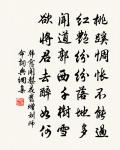 桃蹊惆悵不能過
紅艷紛紛落地多
聞道郭西千樹雪
欲將君去醉如何
韓愈聞梨花發贈劉師
命詞典網集